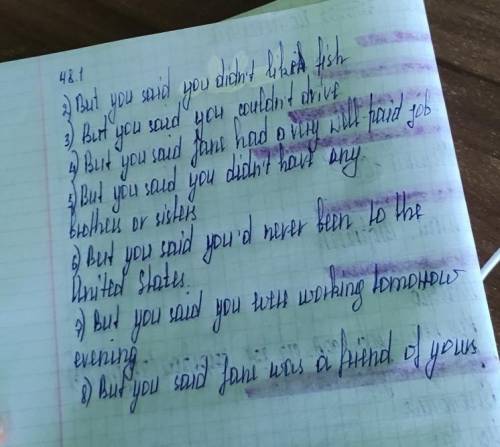 48.1
2) But you said you didn't like fish
3) But you said you couldn't drive
4) But you said Jane had a very well paid job
5) But you said you didn't have any
brothers or sisters
6) But you said you'd never been to the
United States
7) But you said you were working tomorrow
evening
8) But you said Jane was a friend of yours.